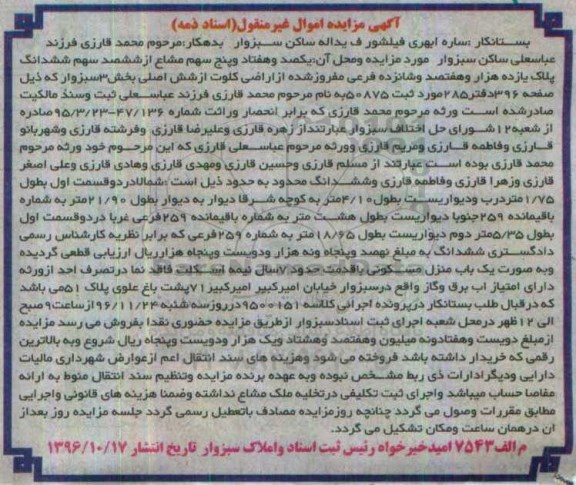 آگهی مزایده اموال غیرمنقول(اسناد ذمه)
بستانکار :ساره ابهری فیلشور ف یداله ساکن سبزوار بدهکار:مرحوم محمد قارزی فرزند
عباسعلی ساکن سبزوار مورد مزایده ومحل آن:یکصد وهفتاد وپنج سهم مشاع ازششصد سهم ششدانگ
پلاک یازده هزار وهفتصد وشانزده فرعی مفروزشده ازاراضی کلوت ازشش اصلی بخش۳سبزوار که ذیل
صفحه ۳۹۶دفتر۲۸۵مورد ثبت ۵۰۸۷۵به نام مرحوم محمد قارزی فرزند عباسعلی ثبت وسند مالکیت
صادرشده است ورثه مرحوم محمد قارزی که برابر انحصار وراثت شماره ۴۷/۱۳۶-۹۵/۳/۲۳صادره
از شعبه۱۲شورای حل اختلاف سبزوار عبارتنداز زهره قارزی وعلیرضا قارزی وفرشته قارزی وشهربانو
قارزی وفاطمه قارزی ومریم قارزی وورثه مرحوم عباسعلی قارزی که این مرحوم خود ورثه مرحوم
محمد قارزی بوده است عبارتند از مسلم قارزی وحسین قارزی ومهدی قارزی وهادی قارزی وعلی اصغر
قارزی وزهرا قارزی وفاطمه قارزی وششدانگ محدود به حدود ذیل است :شمالادردوقسمت اول بطول
۱/۷۵متردرب ودیواریست بطول ۴/۱۰متر به کوچه شرقا دیوار به دیوار بطول ۲۱/۹۰متر به شماره
باقیمانده ۲۵۹جنوبا دیواریست بطول هشت متر به شماره باقیمانده ۲۵۹فرعی غربا دردوقسمت اول
بطول ۵/۳۵متر دوم دیواریست بطول ۱۸/۶۵متر به شماره ۲۵۹فرعی که برابر نظریه کارشناس رسمی
دادگستری ششدانگ به مبلغ نهصد وپنجاه ونه هزار ودویست وپنجاه هزارریال ارزیابی قطعی گردیده
وبه صورت یک باب منزل مسکونی باقدمت حدود ۷سال نیمه اسکلت فاقد نما درتصرف احد ازورثه
دارای امتیاز اب برق وگاز واقع درسبزوار خیابان امیرکبیر امیرکبیر۷۱پشت باغ علوی پلاک ۵۱می باشد
که درقبال طلب بستانکار درپرونده اجرائی کلاسه ۹۵۰۰۱۵۱درروزسه شنبه ۹۶/۱۱/۲۴ازساعت۹صبح
الی ۱۲ظهر درمحل شعبه اجرای ثبت اسنادسبزوار ازطریق مزایده حضوری نقدا بفروش می رسد مزایده
ازمبلغ دویست وهفتادونه میلیون وهفتصد وهشتاد ویک هزار ودویست وپنجاه ریال شروع وبه بالاترین
رقمی که خریدار داشته باشد فروخته می شود وهزینه های سند انتقال اعم ازعوارض شهرداری مالیات
دارایی ودیگرادارات ذی ربط مشخص نبوده وبه عهده برنده مزایده وتنظیم سند انتقال منوط به ارائه
مفاصا حساب میباشد واجرای ثبت تکلیفی درتخلیه ملک مشاع نداشته وضمنا هزینه های قانونی واجرایی
مطابق مقررات وصول می گردد چنانچه روزمزایده مصادف باتعطیل رسمی گردد جلسه مزایده روز بعداز
ان درهمان ساعت ومکان تشکیل می گردد.
م الف۷۵۴۳ امیدخیرخواه رئیس ثبت اسناد واملاک سبزوار تاریخ انتشار ۱۳۹۶/۱۰/۱۷